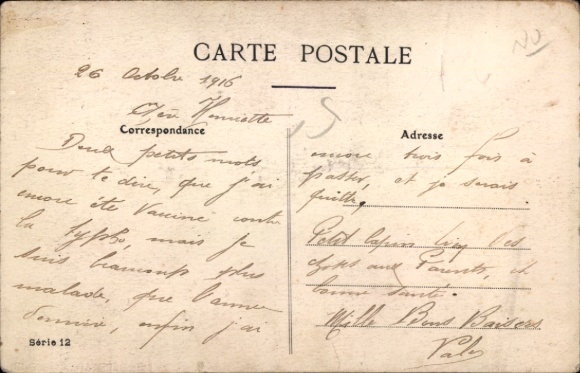 CARTE POSTALE
26 Octobre 1916
Chère Henriette
Correspondance
Deux petits mots
pour te dire, que j'ai
encore été vacciné contre
la typho, mais je
suis beaucoup plus
malade, que l'année
dernière, enfin j'ai
Série 12
Adresse
encore trois fois à
passer, et je serais
quitte,
Petit lapin bien des
choses aux Parents, et
bonne santé.
Mille Bons Baisers